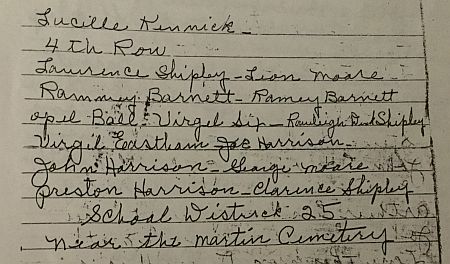 Lucille Kennick -
4 th Row
Lawrence Shipley - Leon Moore
Rammey Barnett - Ramey Barnett
opel Ball - Virgil Sip - Rauleigh Dick Shipley
Virgil Eastham Joe Harrison -
John Harrison - George moore
Preston Harrison - Clarence Shipley
School Districk 25
near the martin Cemetery